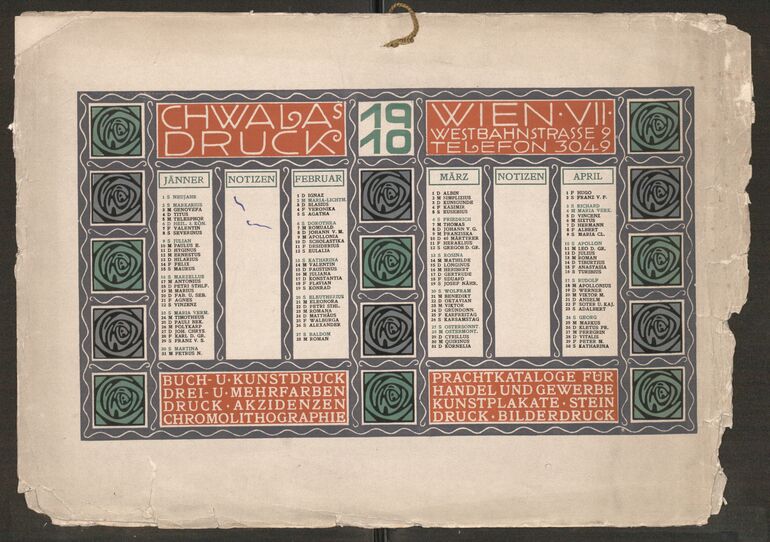 CHWALAS
DRUCK
19
10
WIEN·VII·
WESTBAHNSTRASSE 9
TELEFON 3049
JÄNNER
1 S NEUJAHR
2 S MARKARIUS
3 M GENOVEFA
4 D TITUS
5 M TELESPHOR
6 D HEIL. 3 KÖN.
7 F VALENTIN
8 S SEVERINUS
9 S JULIAN
10 M PAULUS E.
11 D HYGINUS
12 M ERNESTUS
13 D HILARIUS
14 F FELIX
15 S MAURUS
16 S MARZELLUS
17 M ANTONIUS
18 D PETRI STHLF.
19 M MARIUS
20 D FAB. U. SEB.
21 F AGNES
22 S VINZENZ
23 S MARIA VERM.
24 M TIMOTHEUS
25 D PAULI BEK.
26 M POLYKARP
27 D JOH. CHRYS.
28 F KARL D. GR.
29 S FRANZ V. S.
30 S MARTINA
31 M PETRUS N.
NOTIZEN
FEBRUAR
1 D IGNAZ
2 M MARIA-LICHTM.
3 D BLASIUS
4 F VERONIKA
5 S AGATHA
6 S DOROTHEA
7 M ROMUALD
8 D JOHANN V. M.
9 M APOLLONIA
10 D SCHOLASTIKA
11 F DESIDERIUS
12 S EULALIA
13 S KATHARINA
14 M VALENTIN
15 D FAUSTINUS
16 M JULIANA
17 D KONSTANTIA
18 F FLAVIAN
19 S KONRAD
20 S ELEUTHERIUS
21 M ELEONORA
22 D PETRI STHL.
23 M ROMANA
24 D MATTHÄUS
25 F WALBURGA
26 S ALEXANDER
27 S BALDOM
28 M ROMAN
MÄRZ
1 D ALBIN
2 M SIMPLIZIUS
3 D KUNIGUNDE
4 F KASIMIR
5 S EUSEBIUS
6 S FRIEDRICH
7 M THOMAS
8 D JOHANN V. G.
9 M FRANZISKA
10 D 40 MÄRTYRER
11 F HERAKLIUS
12 S GREGOR D. GR.
13 S ROSINA
14 M MATHILDE
15 D LONGINUS
16 M HERIBERT
17 D GERTRUDE
18 F EDUARD
19 S JOSEF NÄHR.
20 S WOLFRAM
21 M BENEDIKT
22 D OKTAVIAN
23 M VIKTOR
24 D GRÜNDONN.
25 F KARFREITAG
26 S KARSAMSTAG
27 S OSTERSONNT.
28 M OSTERMONT.
29 D CYRILLUS
30 M QUIRINUS
31 D KORNELIA
NOTIZEN
APRIL
1 F HUGO
2 S FRANZ V. P.
3 S RICHARD
4 M MARIA VERK.
5 D VINCENZ
6 M SIXTUS
7 D HERMANN
8 F ALBERT
9 S MARIA CL.
10 S APOLLON
11 M LEO D. GR.
12 D JULIUS
13 M ROMAN
14 D TIBURTIUS
15 F ANASTASIA
16 S TURIBIUS
17 S RUDOLF
18 M APOLLONIUS
19 D WERNER
20 M VIKTOR M.
21 D ANSELM
22 F SOTER U. KAJ.
23 S ADALBERT
24 S GEORG
25 M MARKUS
26 D KLETUS PR.
27 M PEREGRIN
28 D VITALIS
29 F PETER M.
30 S KATHARINA
BUCH-U·KUNSTDRUCK
DREI-U·MEHRFARBEN
DRUCK·AKZIDENZEN
CHROMOLITHOGRAPHIE
PRACHTKATALOGE FÜR
HANDEL UND GEWERBE
KUNSTPLAKATE·STEIN
DRUCK·BILDERDRUCK